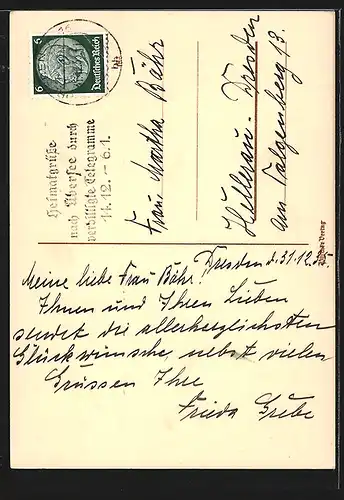 6 Deutsches Reich 6
Heimatgrüße
nach Übersee durch
verbilligte Telegramme
14.12. - 6.1.
Frau Martha Bähr
Hellerau - Dresden
am Talgenberg 13.
Dresden d. 31.12.
Meine liebe Frau Bähr!
Ihnen und Ihren Lieben
sendet die allerherzlichsten
Glückwünsche, nebst vielen
Grüssen Ihre
Frieda Grebe